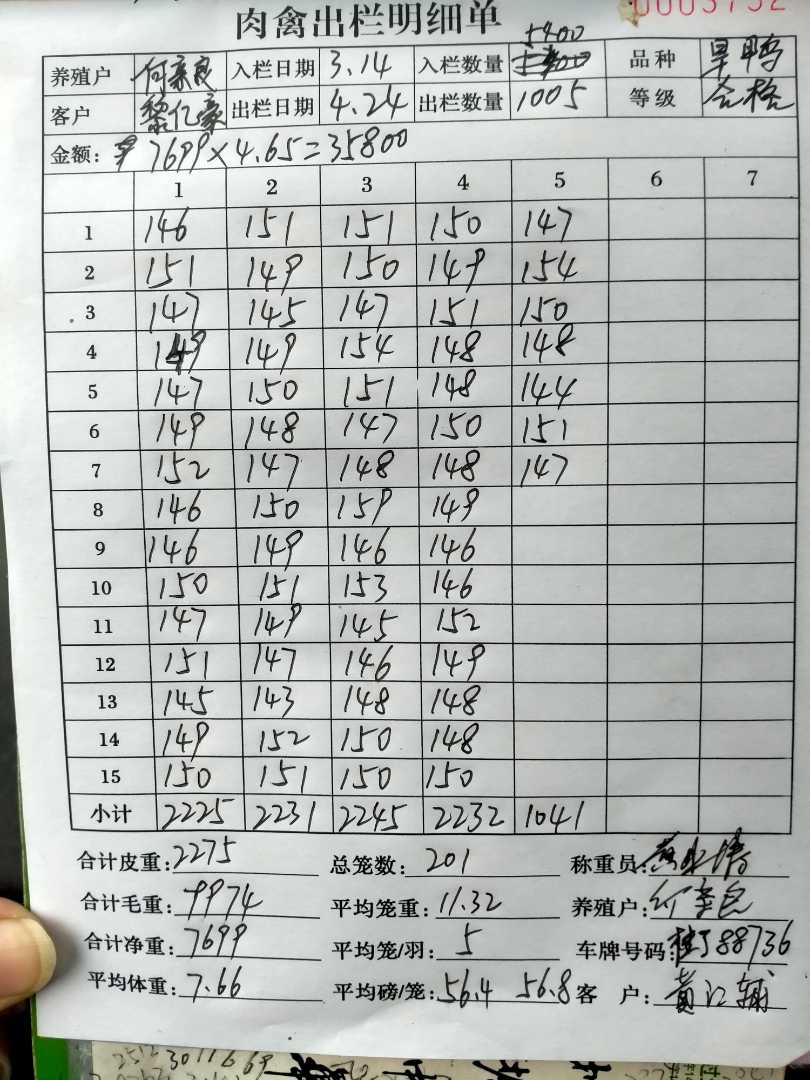 肉禽出栏明细单
0003752
养殖户 何亲良 入栏日期 3.14 入栏数量 5400 品种 旱鸭
客户 黎亿豪 出栏日期 4.24 出栏数量 1005 等级 合格
金额: 7699×4.65=35800
1 2 3 4 5 6 7
1 146 151 151 150 147
2 151 149 150 149 154
3 147 145 147 151 150
4 149 149 154 148 148
5 147 150 151 148 144
6 149 148 147 150 151
7 152 147 148 148 147
8 146 150 159 149
9 146 149 146 146
10 150 151 153 146
11 147 149 145 152
12 151 147 146 149
13 145 143 148 148
14 149 152 150 148
15 150 151 150 150
小计 2225 2231 2245 2232 1041
合计皮重: 2275 总笼数: 201 称重员:
合计毛重: 9974 平均笼重: 11.32 养殖户:
合计净重: 7699 平均笼/羽: 5 车牌号码: 88736
平均体重: 7.66 平均磅/笼: 56.4 56.8 客户: 黄江辅